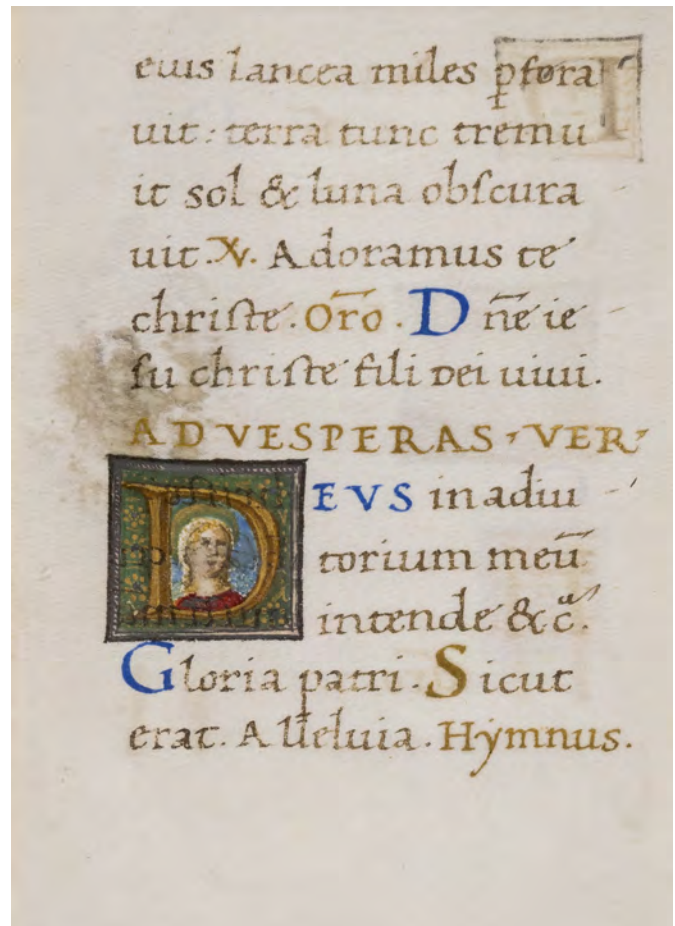 eius lancea miles ꝑfora
uit: terra tunc tremu
it sol & luna obſcura
uit. V. Adoramus te
chriſte. Oro̅. D n̅e ie
ſu chriſte fili dei uiui.
AD VESPERAS, VER,
DEVS in adiu
torium meū
intende & c̅.
Gloria patri. Sicut
erat. Alleluia. Hymnus.